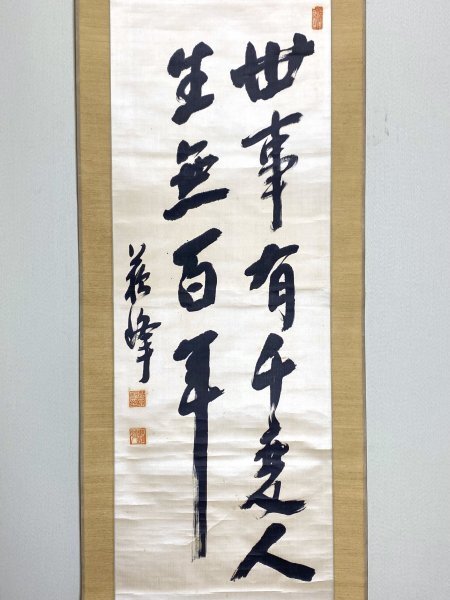 世事有千変人
生無百年
蘇峰